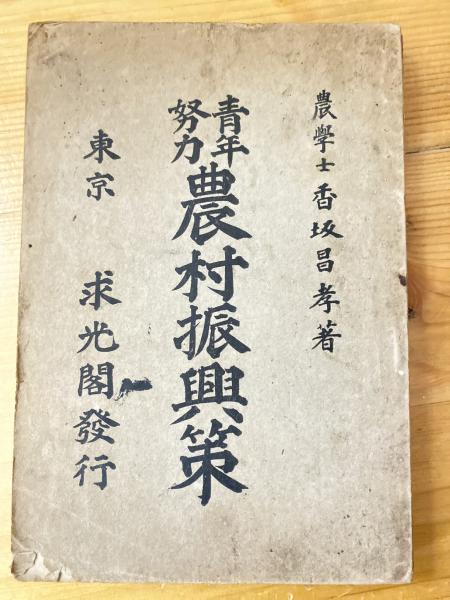 農學士 香坂昌孝著
青年
努力
農村振興策
東京 求光閣發行